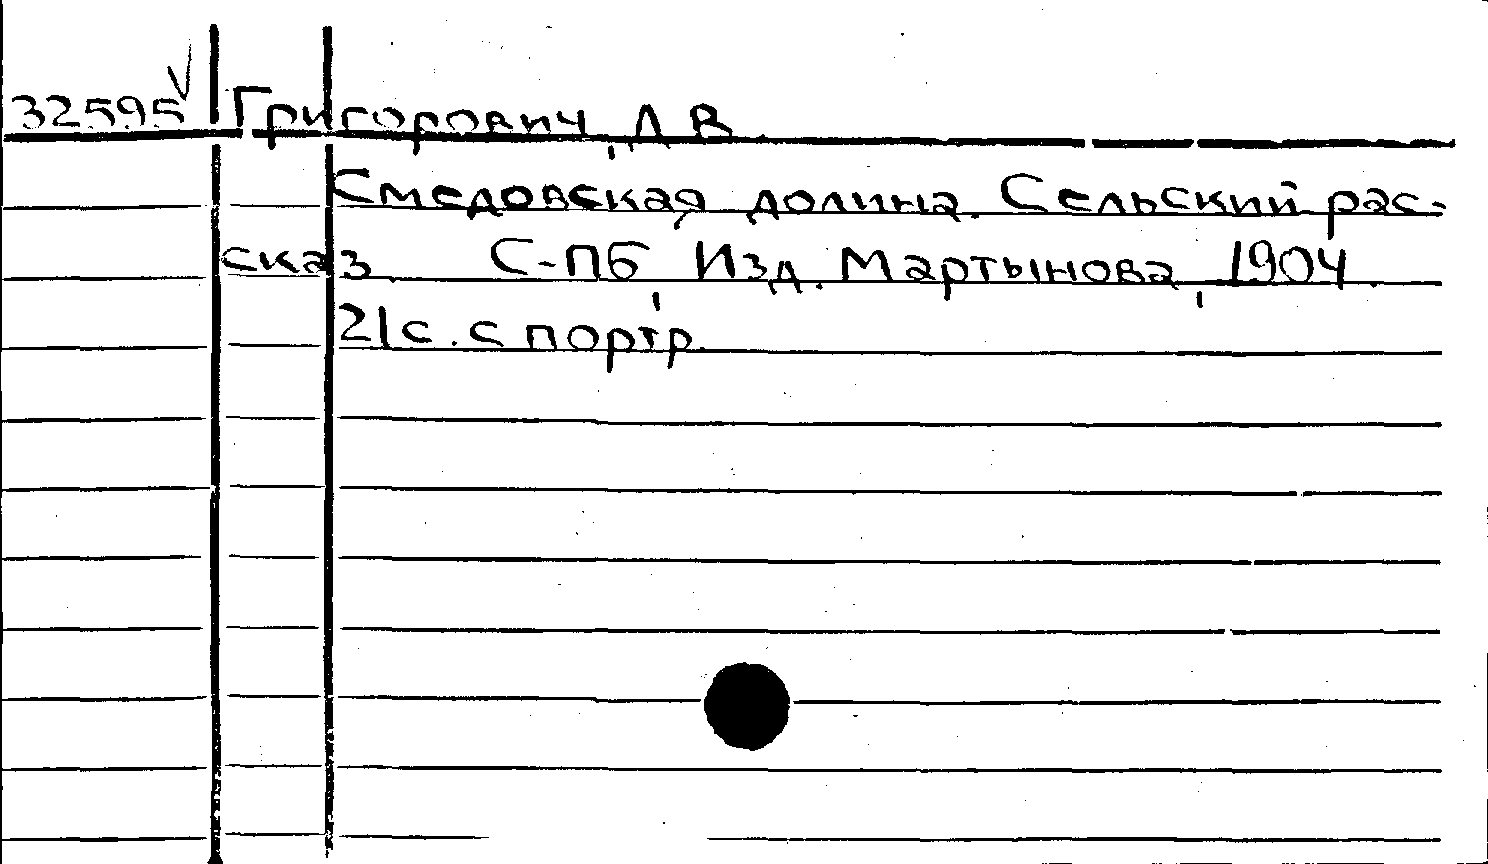 32595 Григорович, Д.В.
Смедовская долина. Сельский рас-
сказ. С-ПБ, Изд. Мартынова, 1904.
21с. с портр.